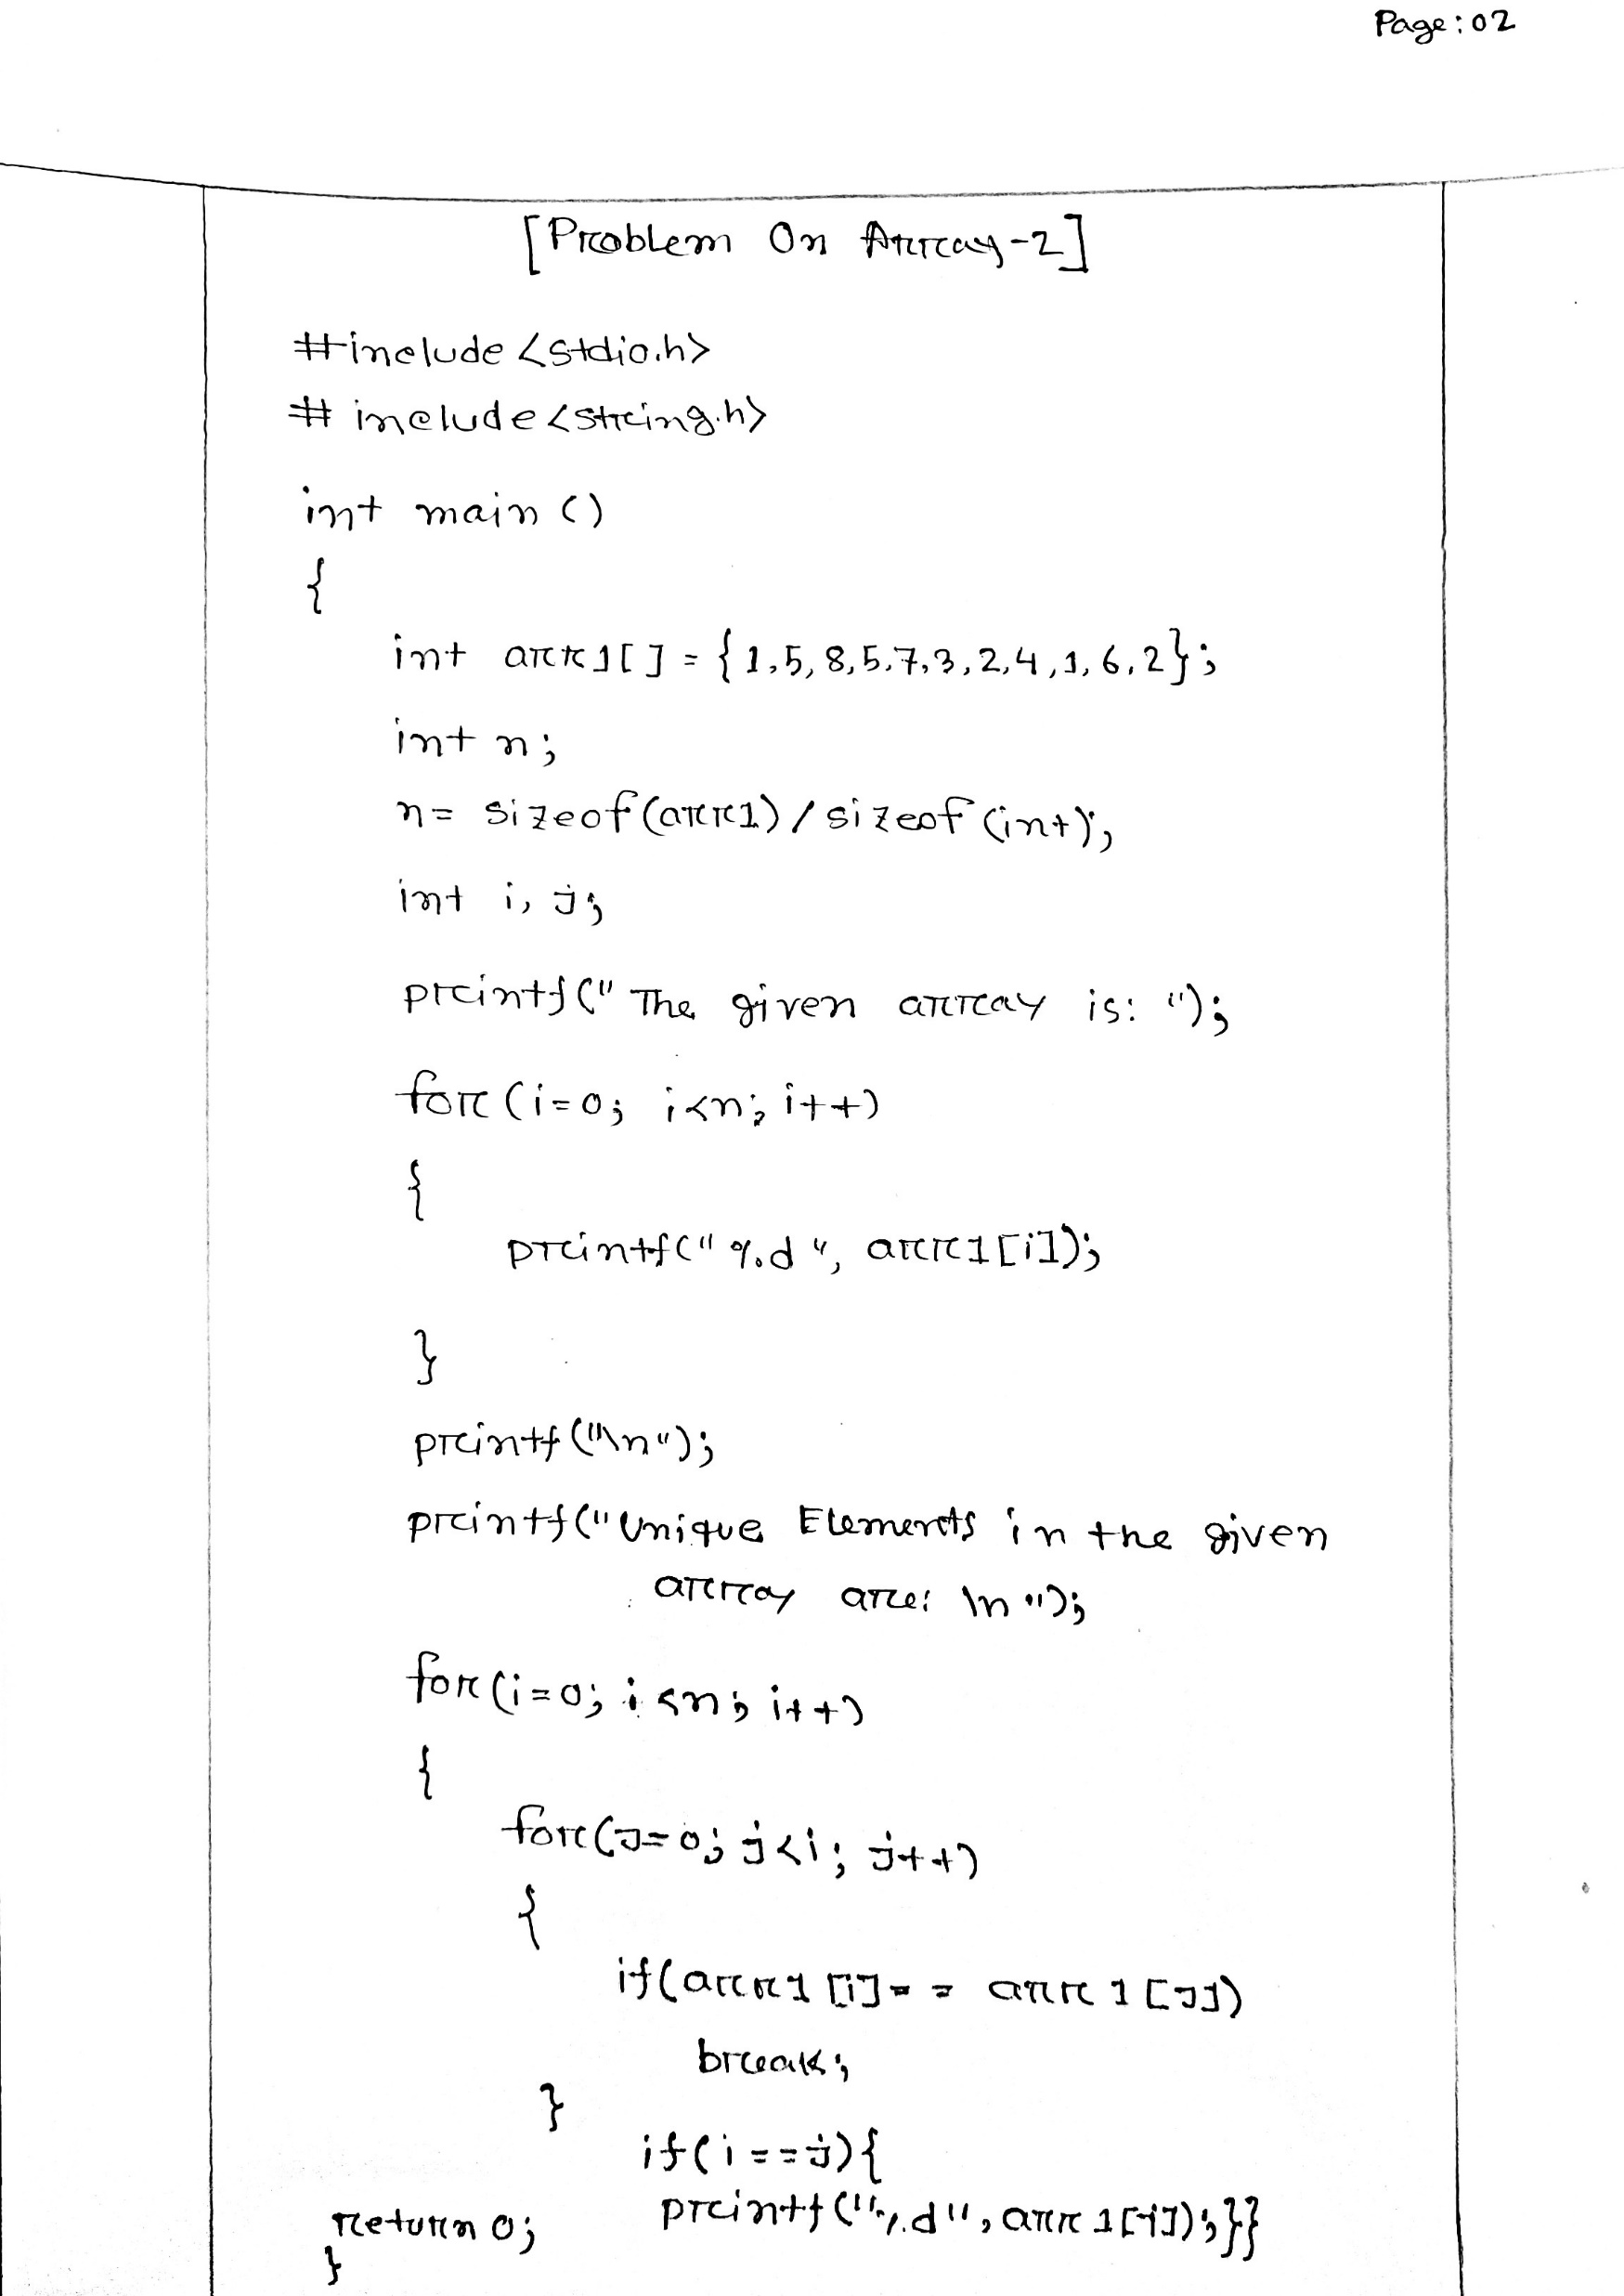 Page: 02
[Problem On Array-2]
#include <stdio.h>
# include <string.h>
int main ()
{
int arr1[] = {1,5,8,5,7,3,2,4,1,6,2};
int n;
n= sizeof(arr1)/sizeof(int);
int i, j;
printf(" The given array is: ");
for (i=0; i<n; i++)
{
printf(" %d ", arr1[i]);
}
printf("\n");
printf("Unique Elements in the given
array are: \n ");
for(i=0; i<n; i++)
{
for(J=0; j<i; j++)
{
if(arr1[i]== arr1[J])
break;
}
if(i==j){
printf("%d", arr1[i]);}}
return 0;
}